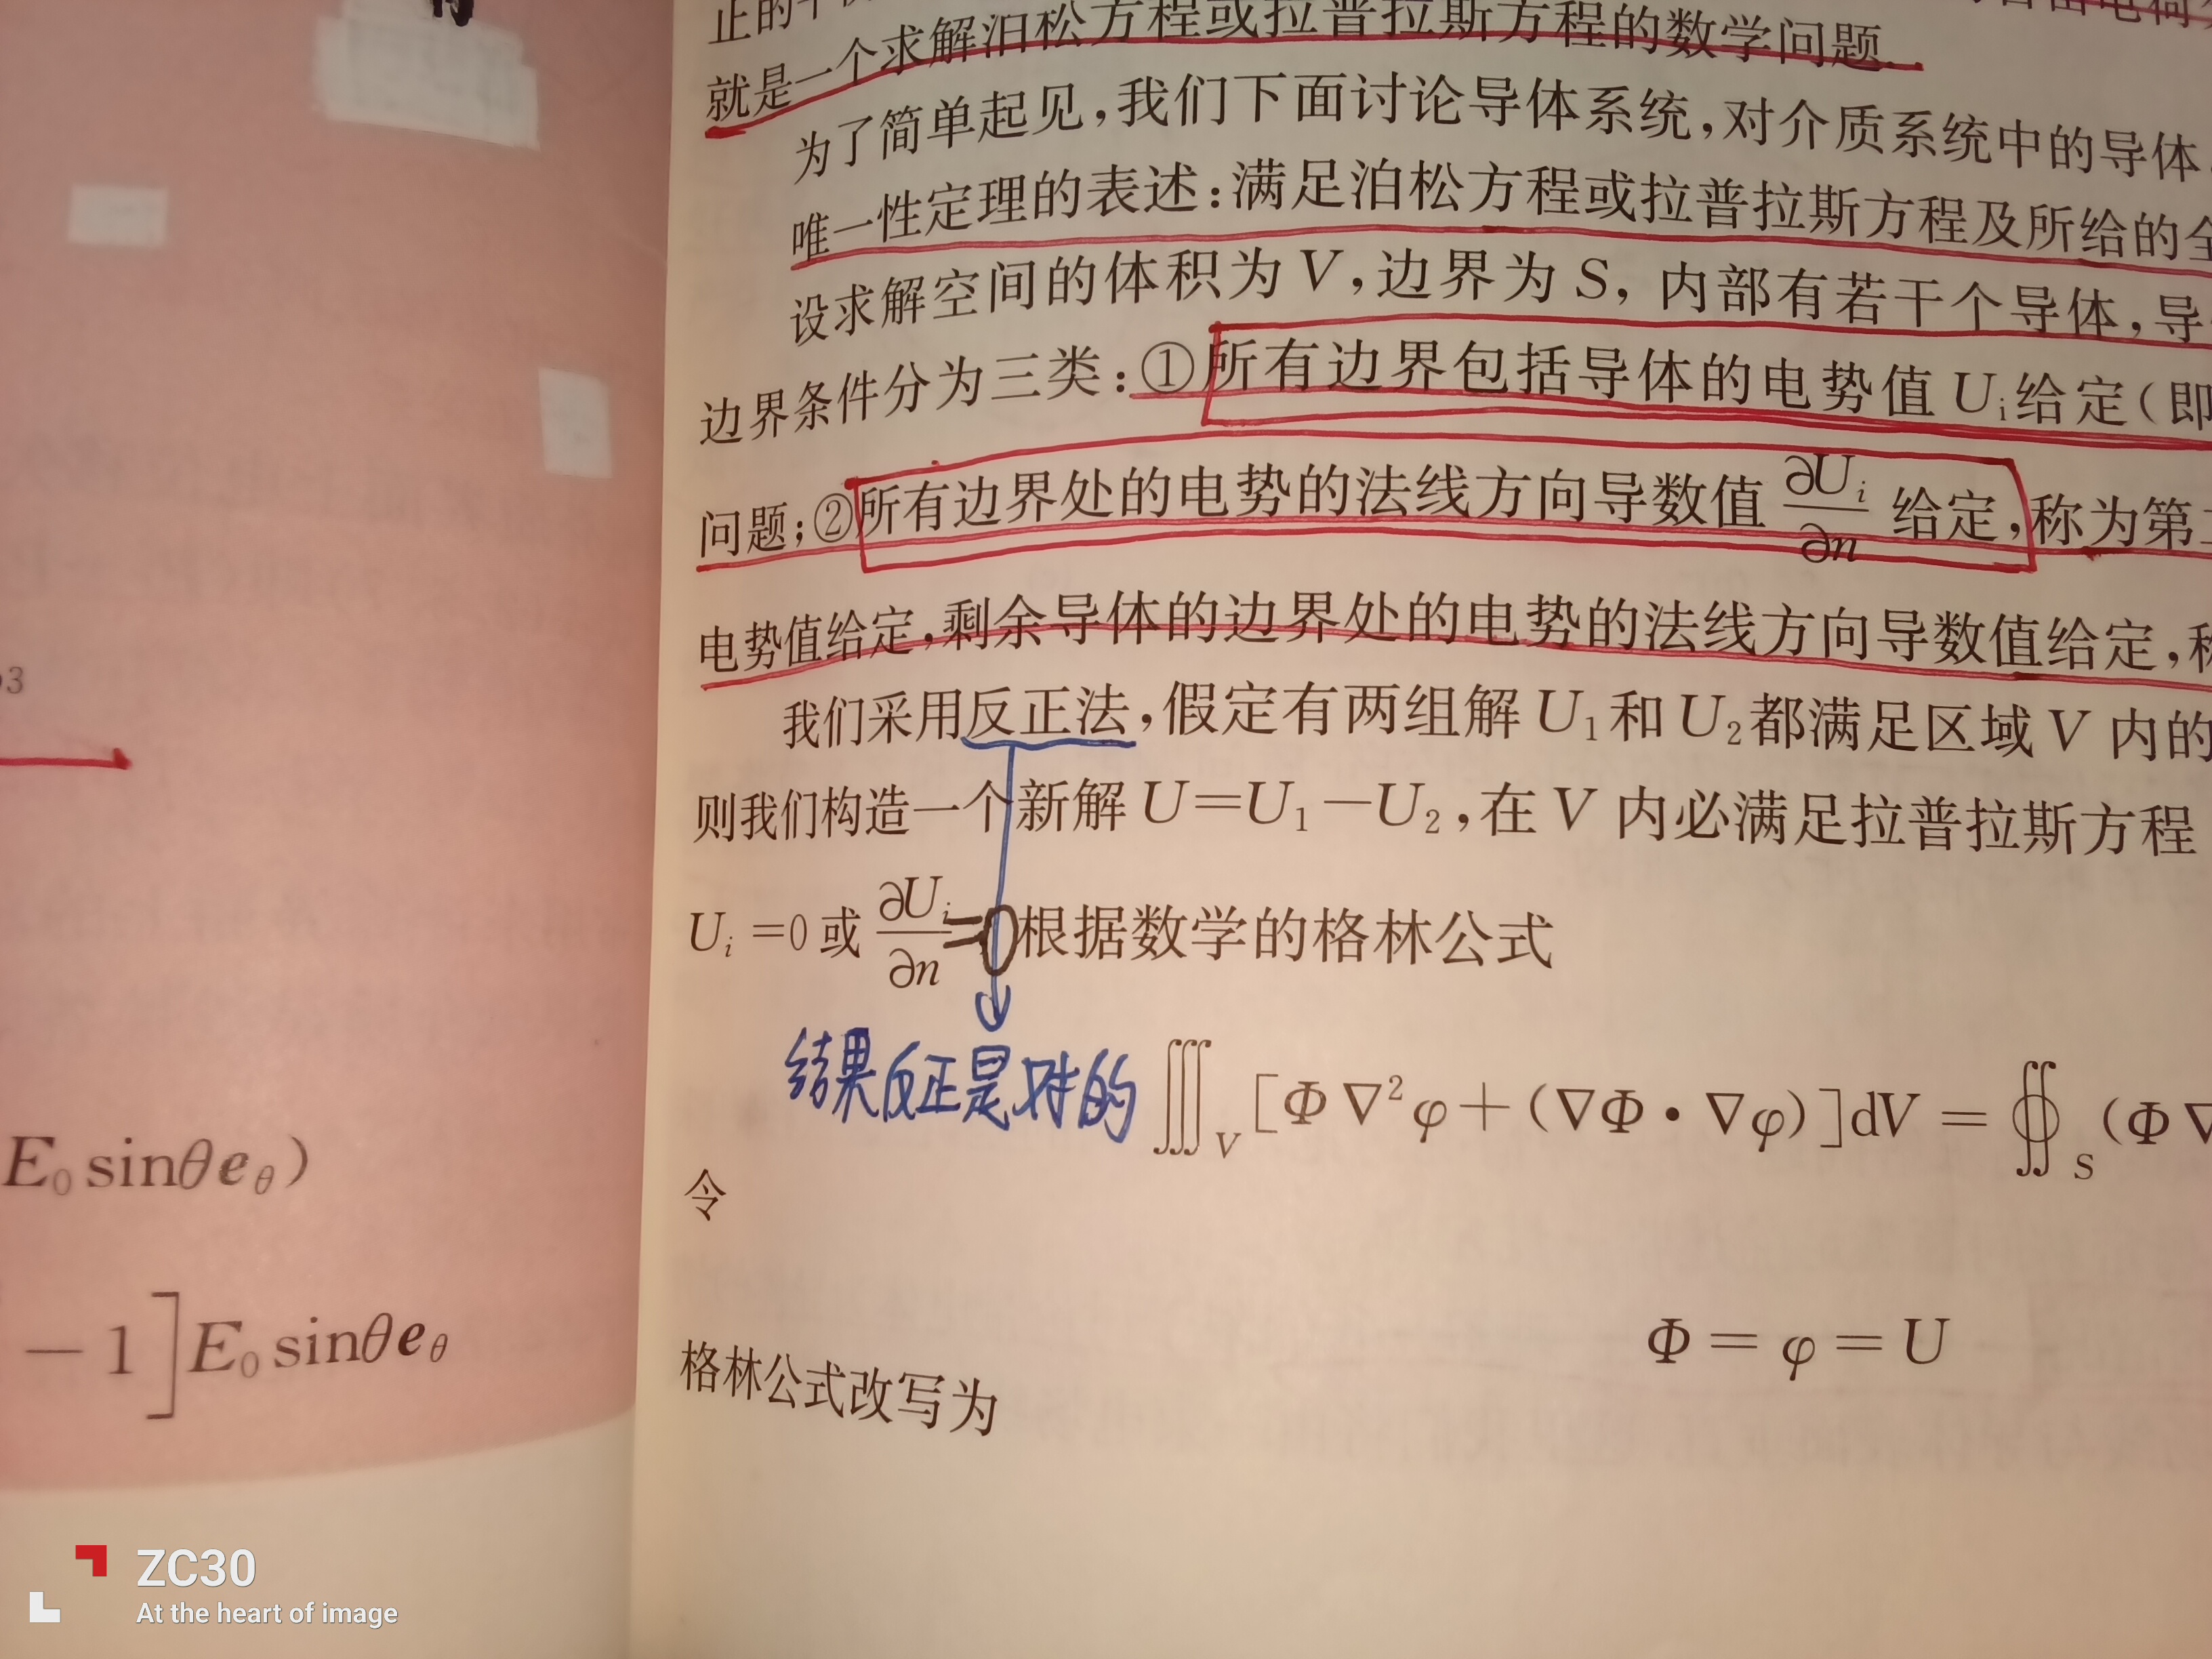 3
E₀sinθe_θ)
-1]E₀sinθe_θ
就是一个求解泊松方程或拉普拉斯方程的数学问题.
为了简单起见,我们下面讨论导体系统,对介质系统中的导体
唯一性定理的表述:满足泊松方程或拉普拉斯方程及所给的全
设求解空间的体积为V,边界为S,内部有若干个导体,导
边界条件分为三类:①所有边界包括导体的电势值Uᵢ给定(即
问题;②所有边界处的电势的法线方向导数值∂Uᵢ/∂n给定,称为第
电势值给定,剩余导体的边界处的电势的法线方向导数值给定,称
我们采用反正法,假定有两组解U₁和U₂都满足区域V内的
则我们构造一个新解U=U₁-U₂,在V内必满足拉普拉斯方程
Uᵢ=0或∂Uᵢ/∂n=0根据数学的格林公式
结果反正是对的
∭_V[Φ∇²φ+(∇Φ·∇φ)]dV=∯_S(Φ∇
令
Φ=φ=U
格林公式改写为
ZC30
At the heart of image